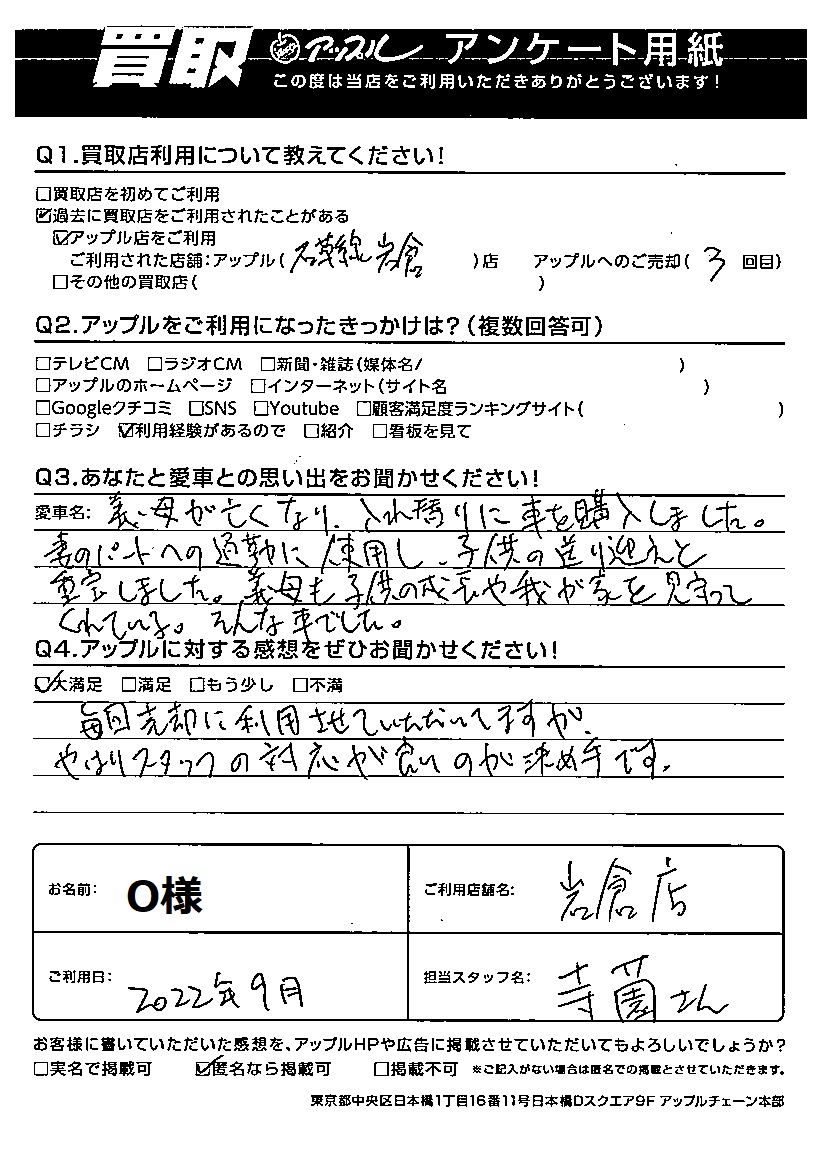 買取 アップル アンケート用紙
この度は当店をご利用いただきありがとうございます!
Q1.買取店利用について教えてください!
□買取店を初めてご利用
☑過去に買取店をご利用されたことがある
☑アップル店をご利用
ご利用された店舗:アップル( 岩倉 )店 アップルへのご売却( 3 回目)
□その他の買取店( )
Q2.アップルをご利用になったきっかけは?(複数回答可)
□テレビCM □ラジオCM □新聞・雑誌(媒体名/ )
□アップルのホームページ □インターネット(サイト名 )
□Googleクチコミ □SNS □Youtube □顧客満足度ランキングサイト( )
□チラシ ☑利用経験があるので □紹介 □看板を見て
Q3.あなたと愛車との思い出をお聞かせください!
愛車名: 義母が亡くなり、入れ替りに車を購入しました。
妻のパートへの通勤に使用し、子供の送り迎えと
重宝しました。義母も子供の成長や我が家を見守って
くれている。そんな車でした。
Q4.アップルに対する感想をぜひお聞かせください!
☑大満足 □満足 □もう少し □不満
毎回売却に利用させていただいてますが、
やはりスタッフの対応が良いのが決め手です。
お名前: O様 ご利用店舗名: 岩倉店
ご利用日: 2022年9月 担当スタッフ名: 寺薗さん
お客様に書いていただいた感想を、アップルHPや広告に掲載させていただいてもよろしいでしょうか?
□実名で掲載可 ☑匿名なら掲載可 □掲載不可 ※ご記入がない場合は匿名での掲載とさせていただきます。
東京都中央区日本橋1丁目16番11号日本橋Dスクエア9F アップルチェーン本部